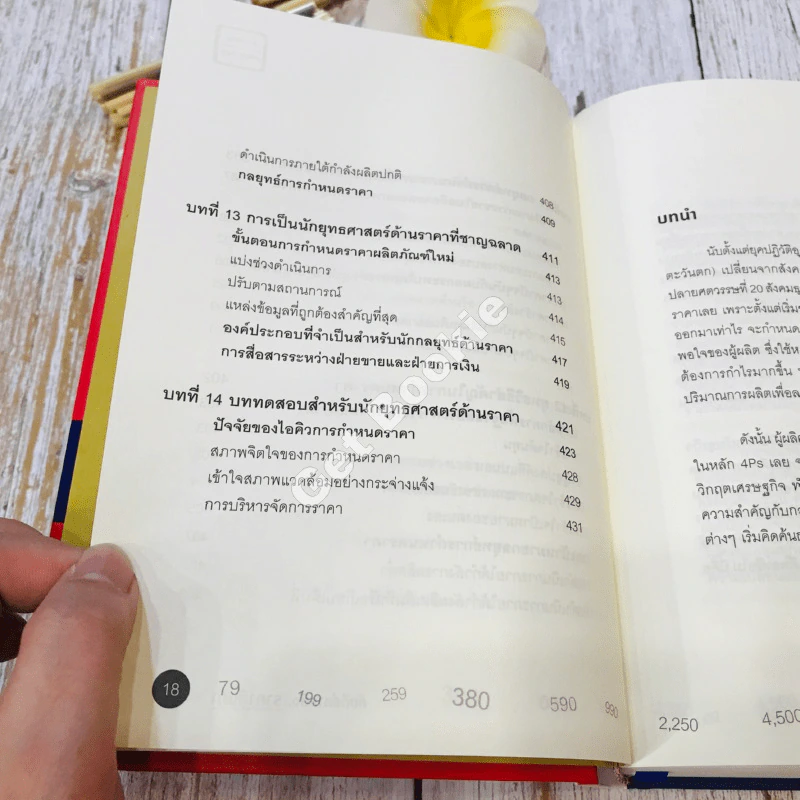 ดำเนินการภายใต้กำลังผลิตปกติ 408
กลยุทธ์การกำหนดราคา 409
บทที่ 13 การเป็นนักยุทธศาสตร์ด้านราคาที่ชาญฉลาด 411
ขั้นตอนการกำหนดราคาผลิตภัณฑ์ใหม่ 413
แบ่งช่วงดำเนินการ 413
ปรับตามสถานการณ์ 414
แหล่งข้อมูลที่ถูกต้องสำคัญที่สุด 415
องค์ประกอบที่จำเป็นสำหรับนักกลยุทธ์ด้านราคา 417
การสื่อสารระหว่างฝ่ายขายและฝ่ายการเงิน 419
บทที่ 14 บททดสอบสำหรับนักยุทธศาสตร์ด้านราคา 421
ปัจจัยของไอคิวการกำหนดราคา 423
สภาพจิตใจของการกำหนดราคา 428
เข้าใจสภาพแวดล้อมอย่างกระจ่างแจ้ง 429
การบริหารจัดการราคา 431
18 79 199 259 380 590 990
Get Bookie
บทนำ
นับตั้งแต่ยุคปฏิวัติอุ
ตะวันตก) เปลี่ยนจากสังค
ปลายศตวรรษที่ 20 สังคมธุ
ราคาเลย เพราะตั้งแต่เริ่ม
ออกมาเท่าไร จะกำหนด
พอใจของผู้ผลิต ซึ่งใช้ห
ต้องการกำไรมากขึ้น
ปริมาณการผลิตเพื่อล
ดังนั้น ผู้ผลิ
ในหลัก 4Ps เลย จ
วิกฤตเศรษฐกิจ ที่
ความสำคัญกับกา
ต่างๆ เริ่มคิดค้น
2,250 4,500